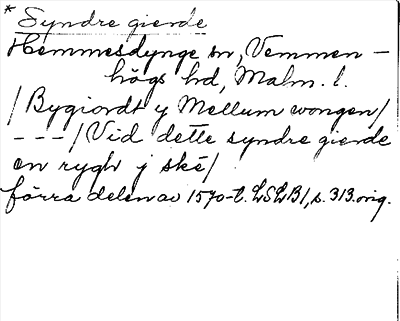 * Syndre gierde
Hemmesdynge sn, Vemmen-
högs hd, Malm. l.
/ Bygiordt y Mellum wongen /
- - - / Vid dette syndre gierde
en rygh j ské /
förra delen av 1570-t. LSLB1, s. 313. orig.